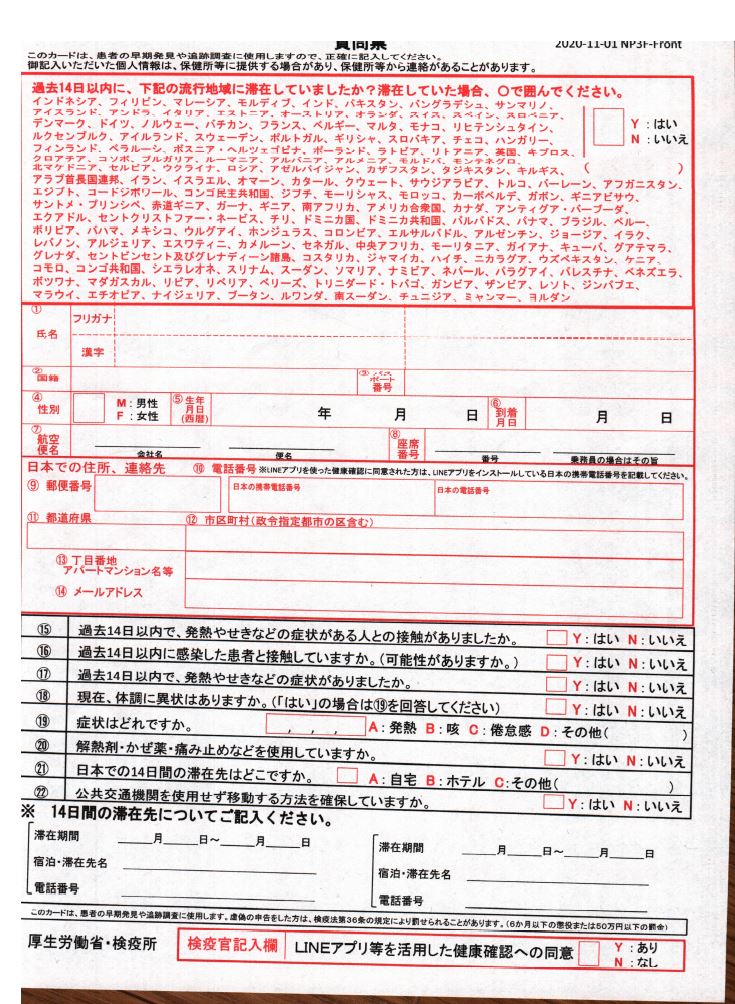 質問票
2020-11-01 NP3F-Front
このカードは、患者の早期発見や追跡調査に使用しますので、正確に記入してください。
御記入いただいた個人情報は、保健所等に提供する場合があり、保健所等から連絡があることがあります。
過去14日以内に、下記の流行地域に滞在していましたか？滞在していた場合、〇で囲んでください。
インドネシア、フィリピン、マレーシア、モルディブ、インド、パキスタン、バングラデシュ、サンマリノ、
アイスランド、アンドラ、イタリア、エストニア、オーストリア、オランダ、スイス、スペイン、スロベニア、
デンマーク、ドイツ、ノルウェー、バチカン、フランス、ベルギー、マルタ、モナコ、リヒテンシュタイン、
ルクセンブルク、アイルランド、スウェーデン、ポルトガル、ギリシャ、スロバキア、チェコ、ハンガリー、
フィンランド、ベラルーシ、ボスニア・ヘルツェゴビナ、ポーランド、ラトビア、リトアニア、英国、キプロス、
クロアチア、コソボ、ブルガリア、ルーマニア、アルバニア、アルメニア、モルドバ、モンテネグロ、
北マケドニア、セルビア、ウクライナ、ロシア、アゼルバイジャン、カザフスタン、タジキスタン、キルギス、
アラブ首長国連邦、イラン、イスラエル、オマーン、カタール、クウェート、サウジアラビア、トルコ、バーレーン、アフガニスタン、
エジプト、コートジボワール、コンゴ民主共和国、ジブチ、モーリシャス、モロッコ、カーボベルデ、ガボン、ギニアビサウ、
サントメ・プリンシペ、赤道ギニア、ガーナ、ギニア、南アフリカ、アメリカ合衆国、カナダ、アンティグア・バーブーダ、
エクアドル、セントクリストファー・ネービス、チリ、ドミニカ国、ドミニカ共和国、バルバドス、パナマ、ブラジル、ペルー、
ボリビア、バハマ、メキシコ、ウルグアイ、ホンジュラス、コロンビア、エルサルバドル、アルゼンチン、ジョージア、イラク、
レバノン、アルジェリア、エスワティニ、カメルーン、セネガル、中央アフリカ、モーリタニア、ガイアナ、キューバ、グアテマラ、
グレナダ、セントビンセント及びグレナディーン諸島、コスタリカ、ジャマイカ、ハイチ、ニカラグア、ウズベキスタン、ケニア、
コモロ、コンゴ共和国、シエラレオネ、スリナム、スーダン、ソマリア、ナミビア、ネパール、パラグアイ、パレスチナ、ベネズエラ、
ボツワナ、マダガスカル、リビア、リベリア、ベリーズ、トリニダード・トバゴ、ガンビア、ザンビア、レソト、ジンバブエ、
マラウイ、エチオピア、ナイジェリア、ブータン、ルワンダ、南スーダン、チュニジア、ミャンマー、ヨルダン
Y：はい
N：いいえ
( )
① 氏名
フリガナ
漢字
② 国籍
③ パスポート番号
④ 性別
M：男性
F：女性
⑤ 生年月日(西暦)
年 月 日
⑥ 到着月日
月 日
⑦ 航空便名
会社名 便名
⑧ 座席番号
番号 乗務員の場合はその旨
日本での住所、連絡先 ⑩ 電話番号 ※LINEアプリを使った健康確認に同意された方は、LINEアプリをインストールしている日本の携帯電話番号を記載してください。
⑨ 郵便番号
日本の携帯電話番号
日本の電話番号
⑪ 都道府県
⑫ 市区町村(政令指定都市の区含む)
⑬ 丁目番地
アパートマンション名等
⑭ メールアドレス
⑮ 過去14日以内で、発熱やせきなどの症状がある人との接触がありましたか。 Y：はい N：いいえ
⑯ 過去14日以内に感染した患者と接触していますか。(可能性がありますか。) Y：はい N：いいえ
⑰ 過去14日以内で、発熱やせきなどの症状がありましたか。 Y：はい N：いいえ
⑱ 現在、体調に異状はありますか。(「はい」の場合は⑲を回答してください) Y：はい N：いいえ
⑲ 症状はどれですか。 , , , A：発熱 B：咳 C：倦怠感 D：その他( )
⑳ 解熱剤・かぜ薬・痛み止めなどを使用していますか。 Y：はい N：いいえ
㉑ 日本での14日間の滞在先はどこですか。 A：自宅 B：ホテル C：その他( )
㉒ 公共交通機関を使用せず移動する方法を確保していますか。 Y：はい N：いいえ
※ 14日間の滞在先についてご記入ください。
滞在期間 ____月____日～____月____日
宿泊・滞在先名
電話番号
滞在期間 ____月____日～____月____日
宿泊・滞在先名
電話番号
このカードは、患者の早期発見や追跡調査に使用します。虚偽の申告をした方は、検疫法第36条の規定により罰せられることがあります。(6か月以下の懲役または50万円以下の罰金)
厚生労働省・検疫所
検疫官記入欄
LINEアプリ等を活用した健康確認への同意
Y：あり
N：なし